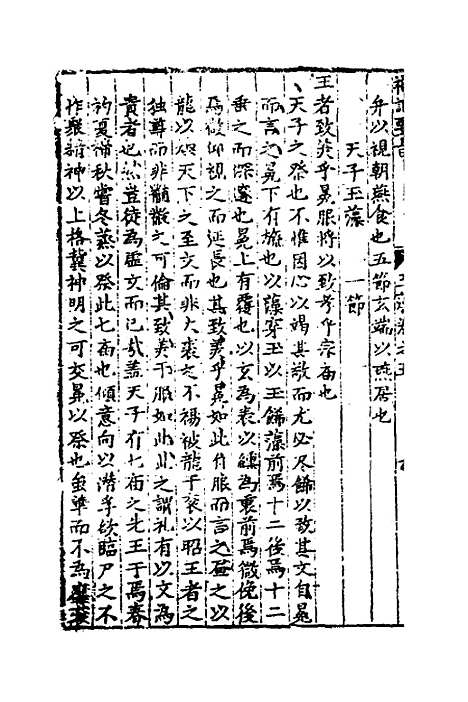 弁以視朝燕食也五節玄端以燕居也
天子玉藻　一節
王者致美乎冕服将以致孝乎宗庙也
天子之祭也不惟因心以竭其敬而尤必尽餙以致其文自冕
而言之冕下有旒也以藻穿玉以玉餙藻前焉十二後焉十二
垂之而深邃也冕上有覆也以玄為表以纁為裏前焉微俛後
焉微仰視之而延長也其致美乎冕如此自服而言之画之以
龍以盡天下之至文而非大裘之不裼被龍于衮以昭王者之
独尊而非黼黻之可倫其致美于服如此此之謂礼有以文為
貴者也然豈徒為虛文而已哉盖天子有七庙之先王于焉春
礿夏禘秋嘗冬蒸以祭此七庙也傾意向以潜孚欽臨尸之不
怍聚精神以上格冀神明之可交冕以祭也垂華而不為